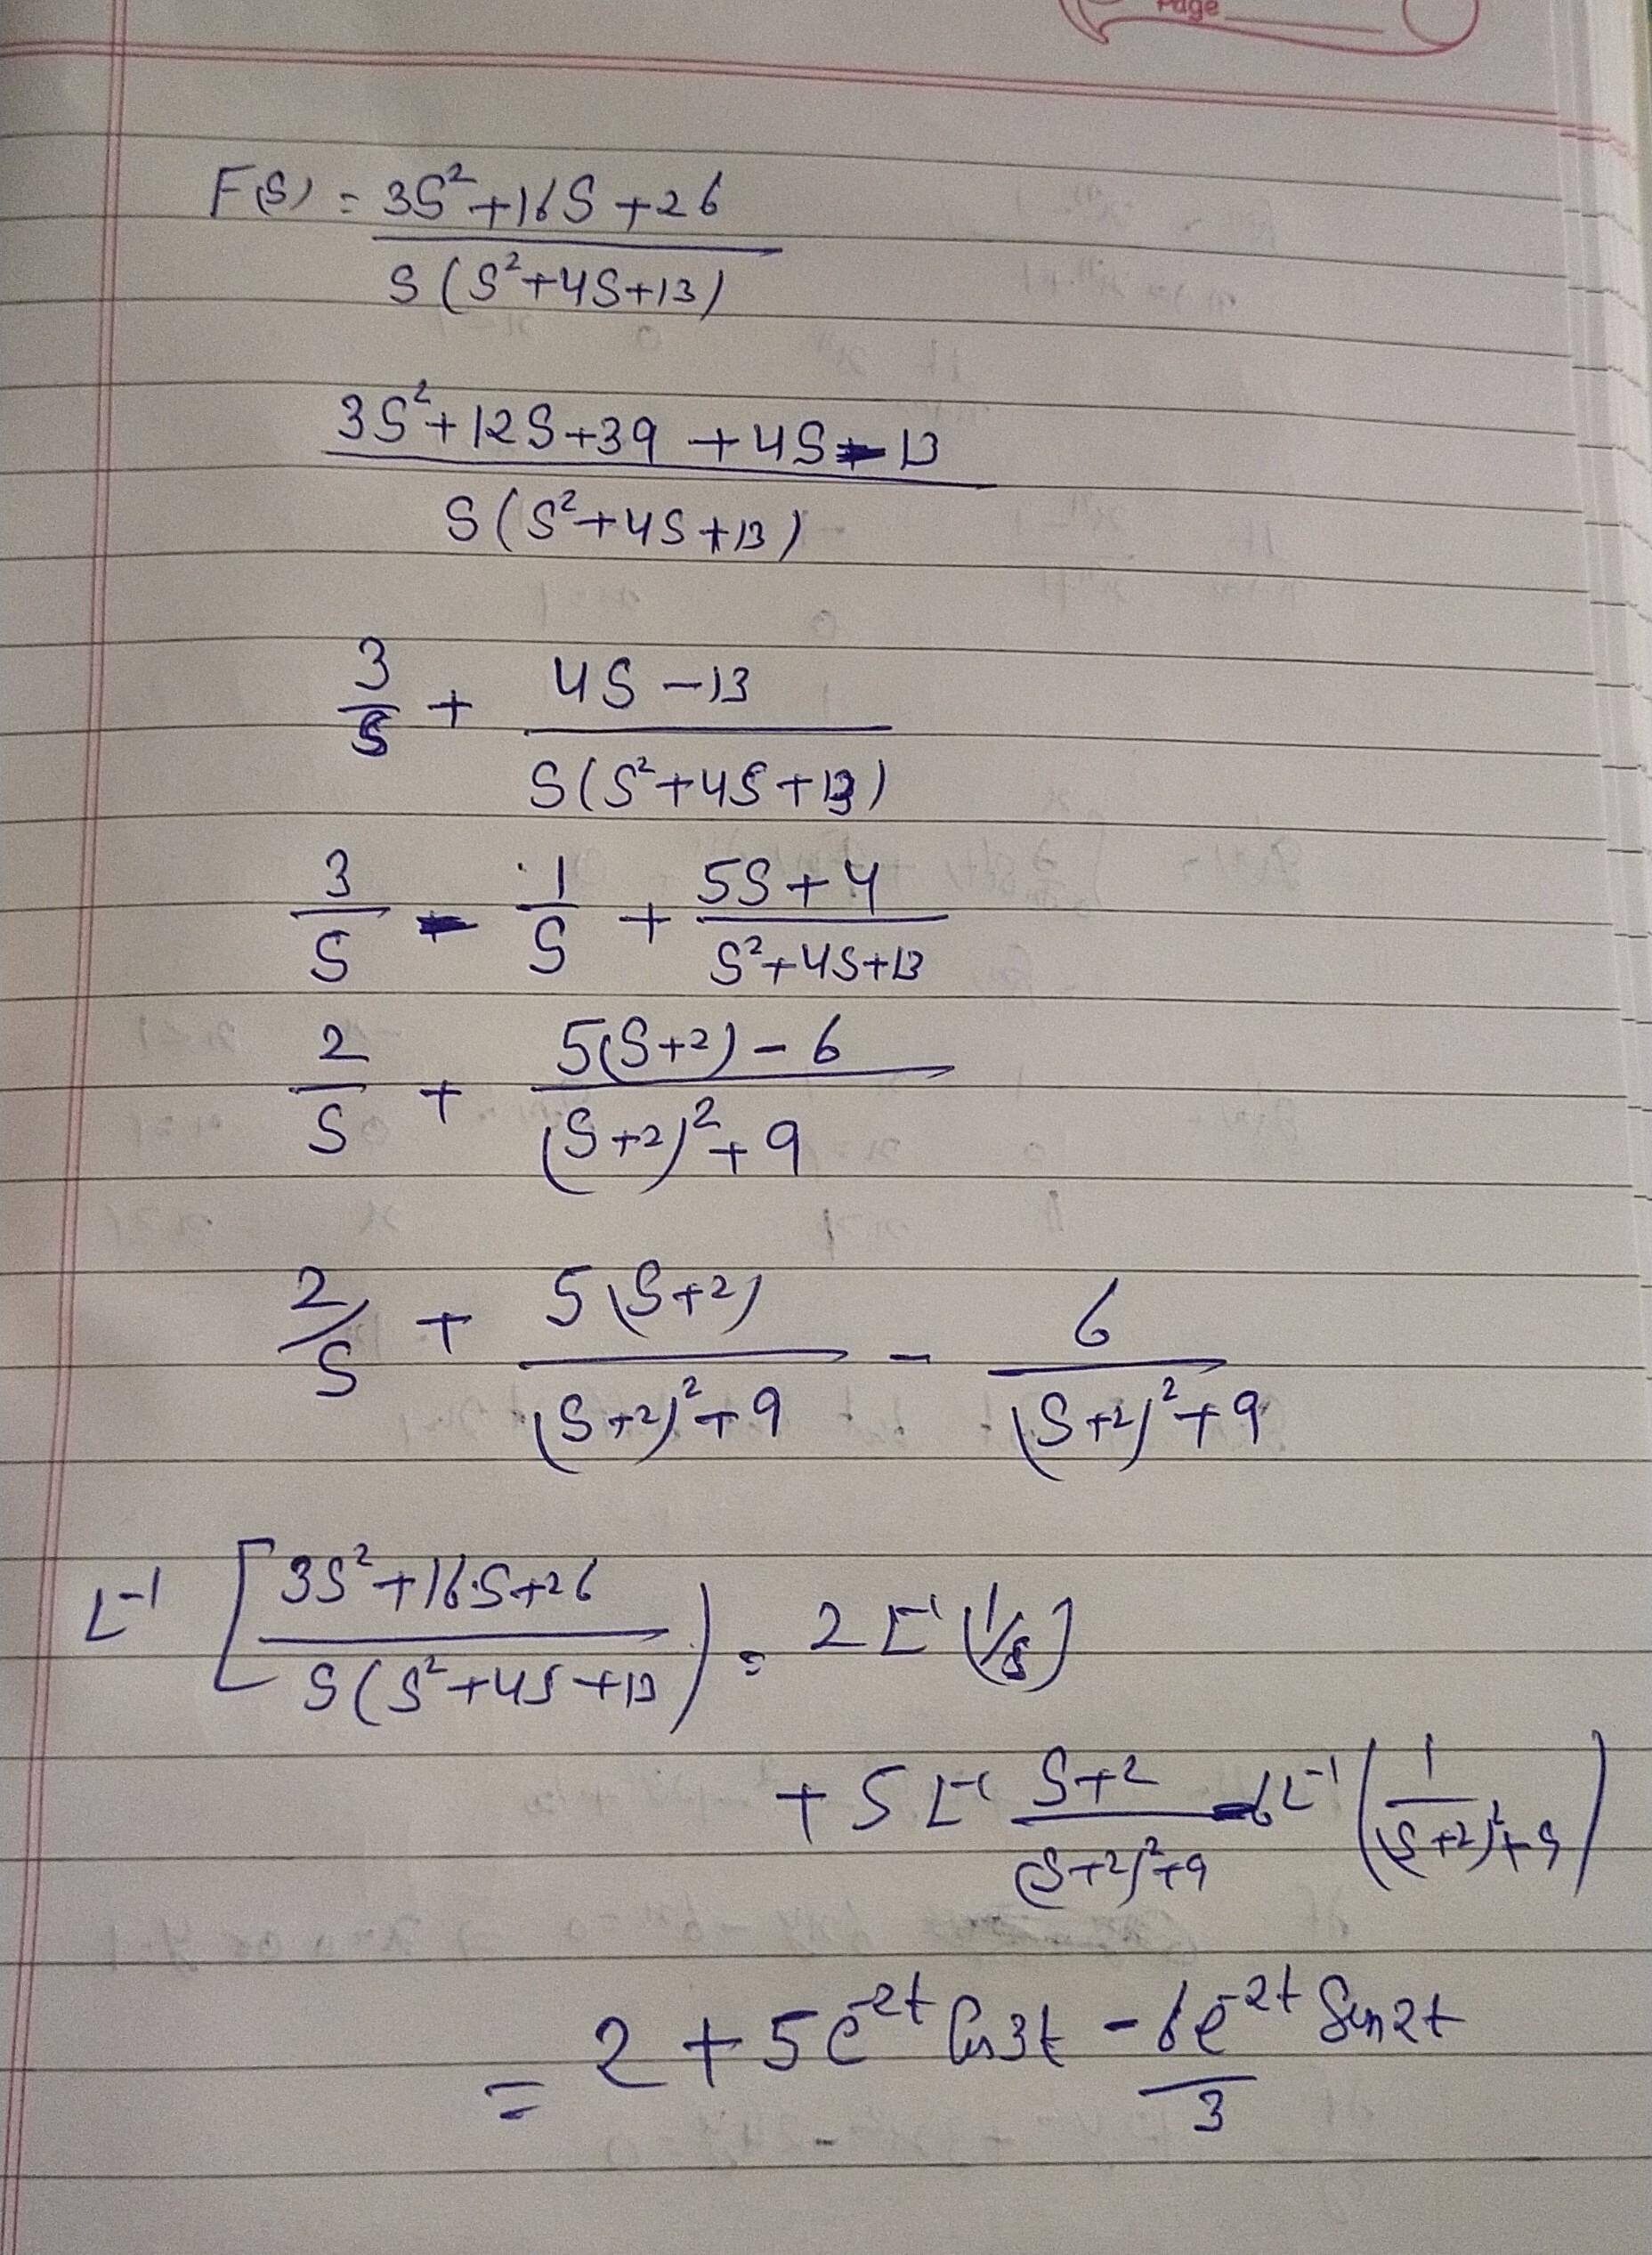 Page
F(S) = 3S²+16S+26
S(S²+4S+13)
3S²+12S+39 +4S-13
S(S²+4S+13)
3/S + 4S-13
S(S²+4S+13)
3/S - 1/S + 5S+4
S²+4S+13
2/S + 5(S+2)-6
(S+2)²+9
2/S + 5(S+2) - 6
(S+2)²+9 (S+2)²+9
L⁻¹ [3S²+16S+26 / S(S²+4S+13) = 2 L⁻¹(1/S)
+ 5 L⁻¹ S+2 / (S+2)²+9 -6L⁻¹ (1 / (S+2)²+9)
= 2 + 5e⁻²ᵗ Cos3t - 6e⁻²ᵗ Sin2t
3